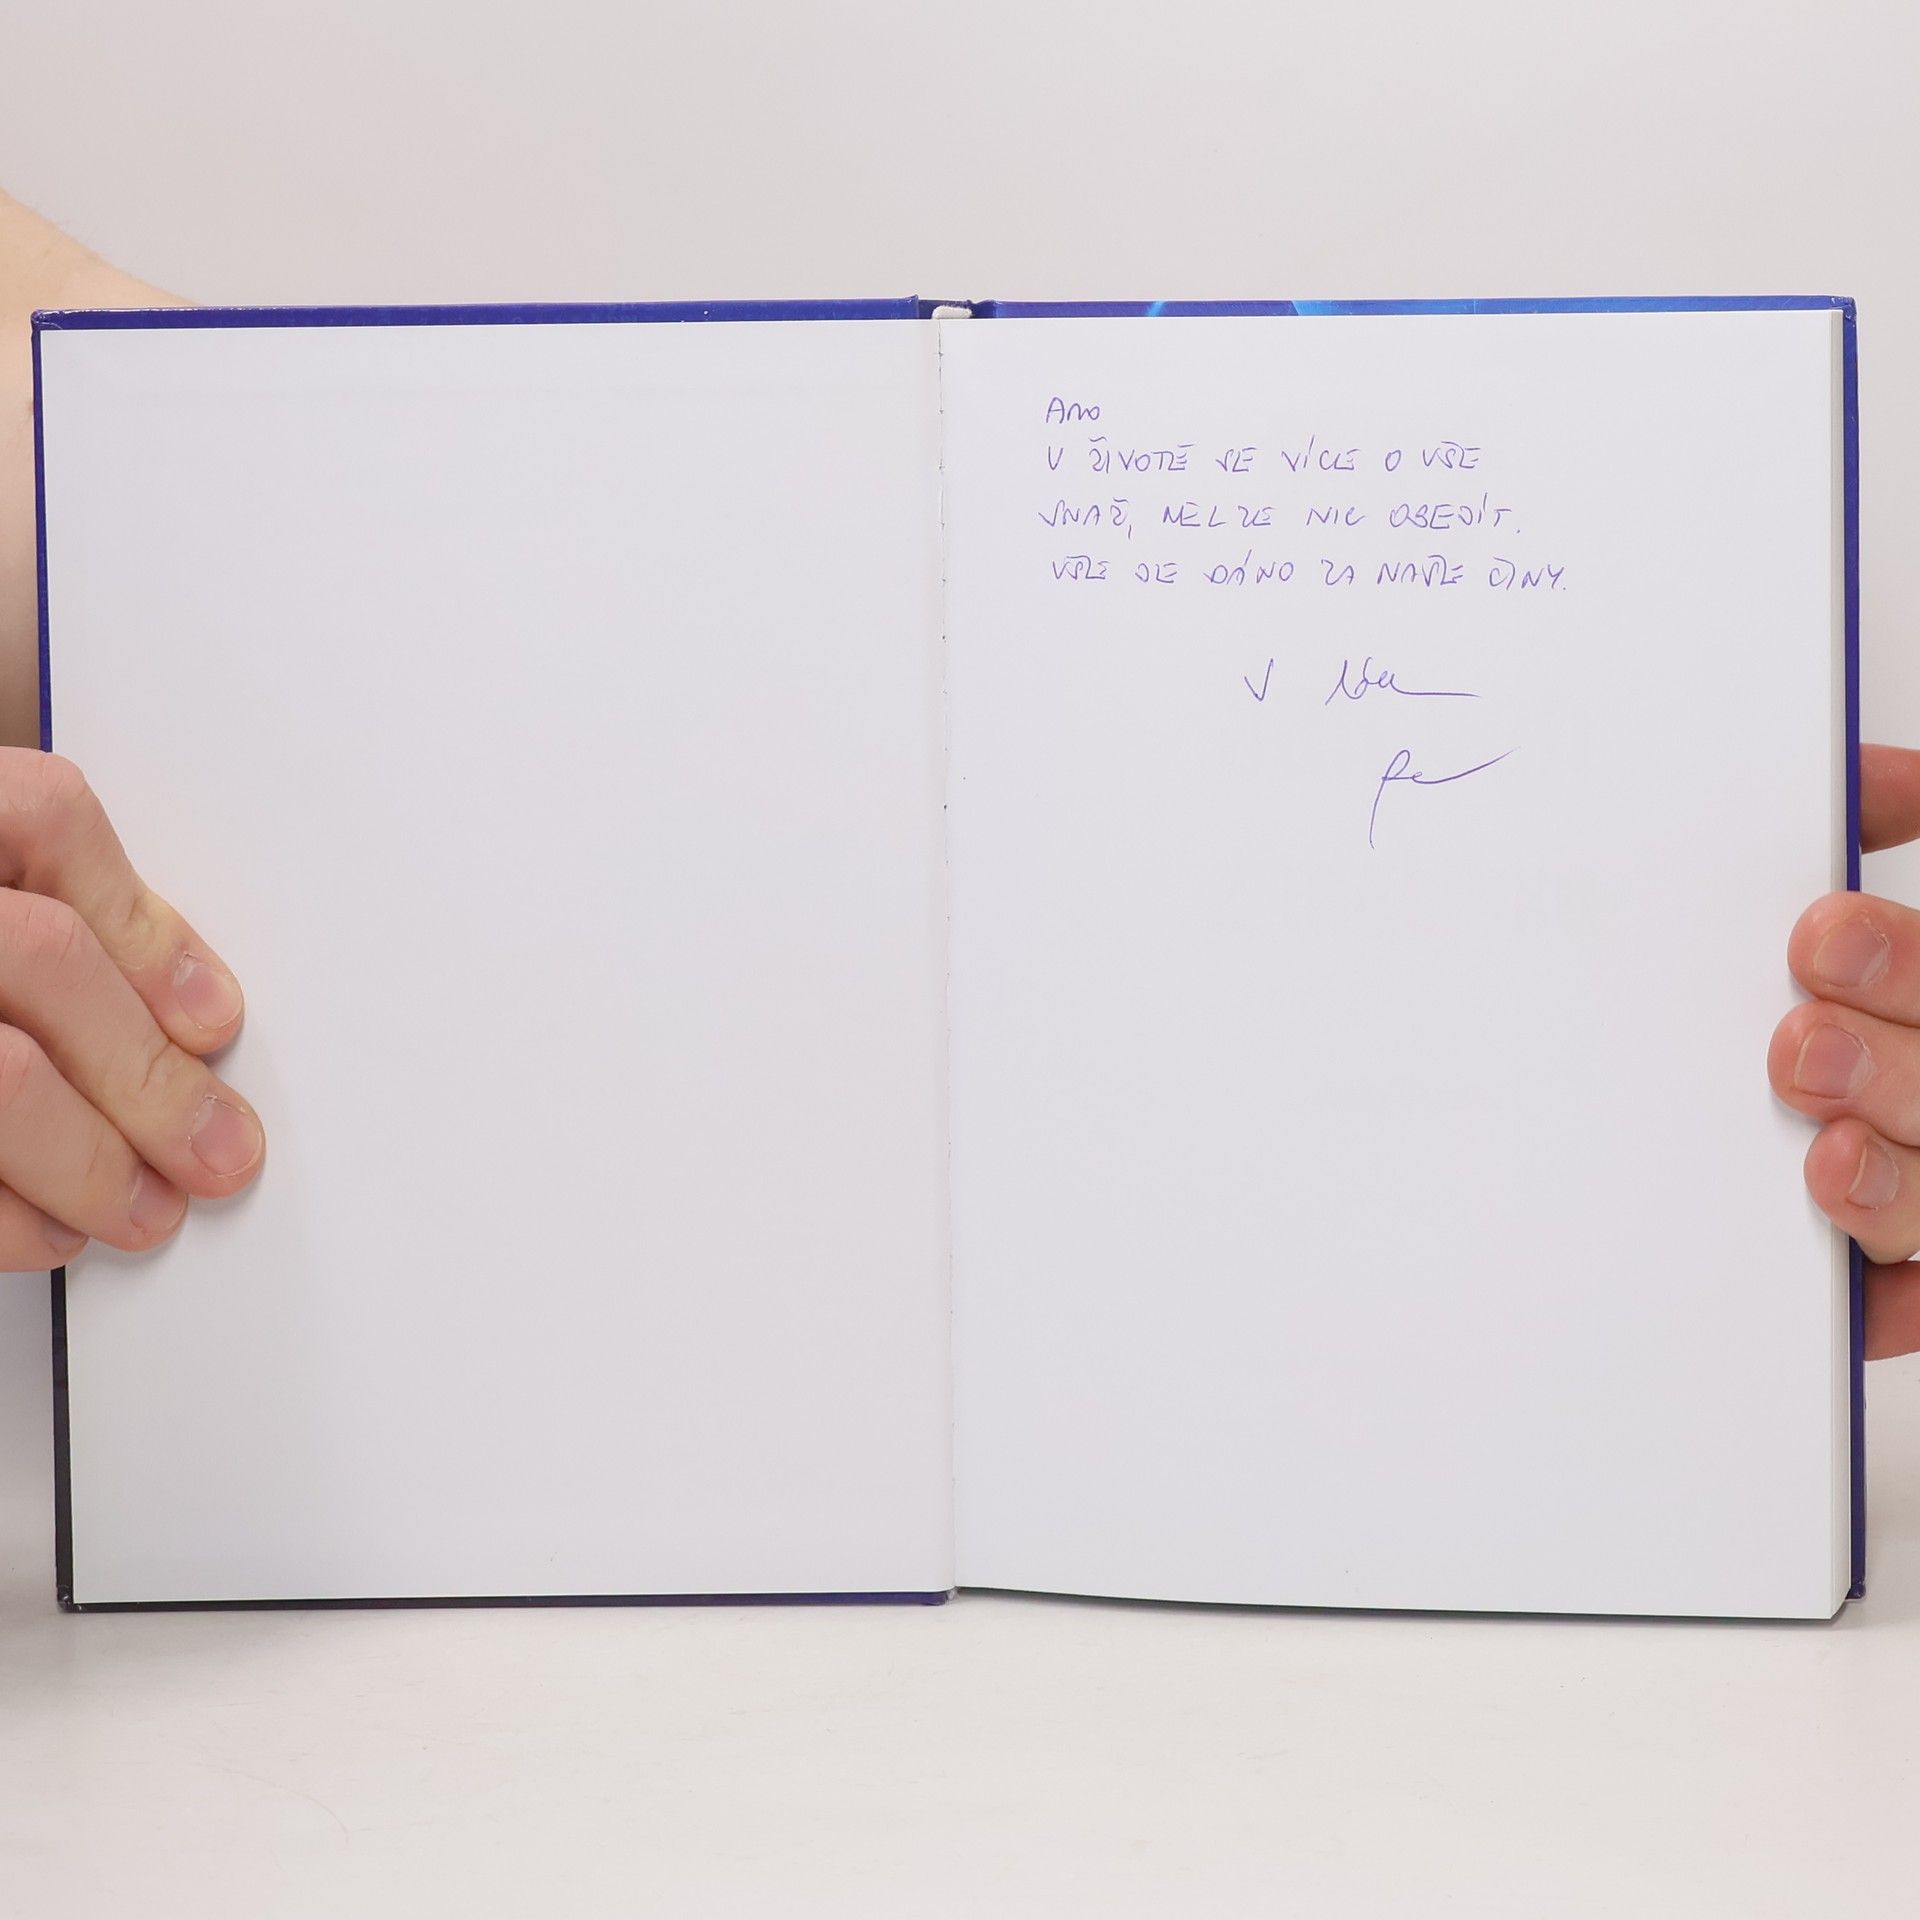 Ano
V ŽIVOTĚ SE VÍCE O VŠE
SNAŽ, NELZE NIC OBEJÍT.
VŠE JE DÁNO ZA NAŠE ČINY.
V